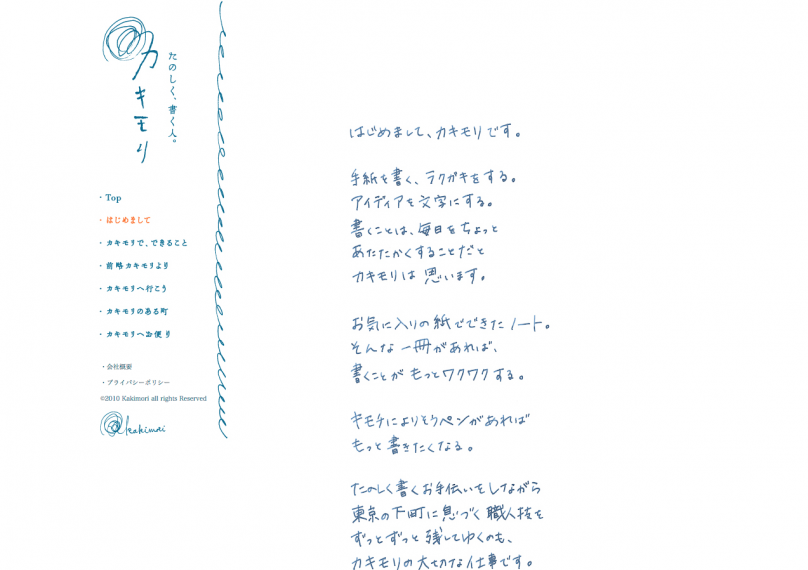 カキモリ
たのしく、書く人。
・Top
・はじめまして
・カキモリで、できること
・前略カキモリより
・カキモリへ行こう
・カキモリのある町
・カキモリへお便り
・会社概要
・プライバシーポリシー
©2010 Kakimori all rights Reserved
kakimori
はじめまして、カキモリです。
手紙を書く、ラクガキをする。
アイディアを文字にする。
書くことは、毎日をちょっと
あたたかくすることだと
カキモリは思います。
お気に入りの紙でできたノート。
そんな一冊があれば、
書くことがもっとワクワクする。
キモチによりそうペンがあれば
もっと書きたくなる。
たのしく書くお手伝いをしながら
東京の下町に息づく職人技を
ずっとずっと残してゆくのも、
カキモリの大切な仕事です。